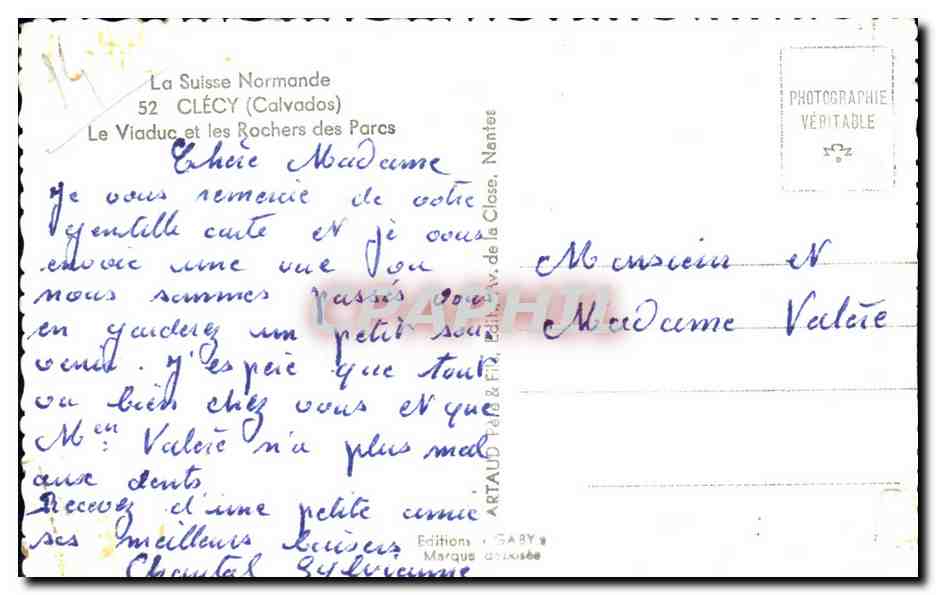 14
La Suisse Normande
52 CLÉCY (Calvados)
Le Viaduc et les Rochers des Parcs
Chère Madame
Je vous remercie de votre
gentille carte et je vous
envoie une vue ou
nous sommes passés vous
en garderez un petit sou
venir. J'espère que tout
va bien chez vous et que
Men Valère n'a plus mal
aux dents
Recevez d'une petite amie
ses meilleurs baisers
Chantal Sylvianne
ARTAUD Père & Fils, Édit., Av. de la Close, Nantes
Editions "GABY"
Marque déposée
PHOTOGRAPHIE
VÉRITABLE
Monsieur et
Madame Valère
CPAPHIL